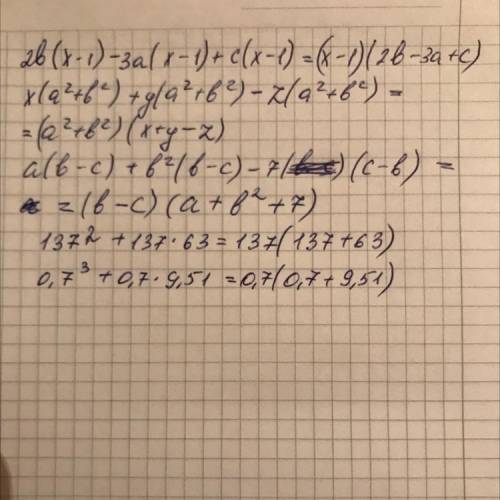 2b(x-1)-3a(x-1)+c(x-1)=(x-1)(2b-3a+c)
x(a²+b²)+y(a²+b²)-z(a²+b²)=
=(a²+b²)(x+y-z)
a(b-c)+b²(b-c)-7(c-b)=
=(b-c)(a+b²+7)
137²+137·63=137(137+63)
0,7³+0,7·9,51=0,7(0,7+9,51)